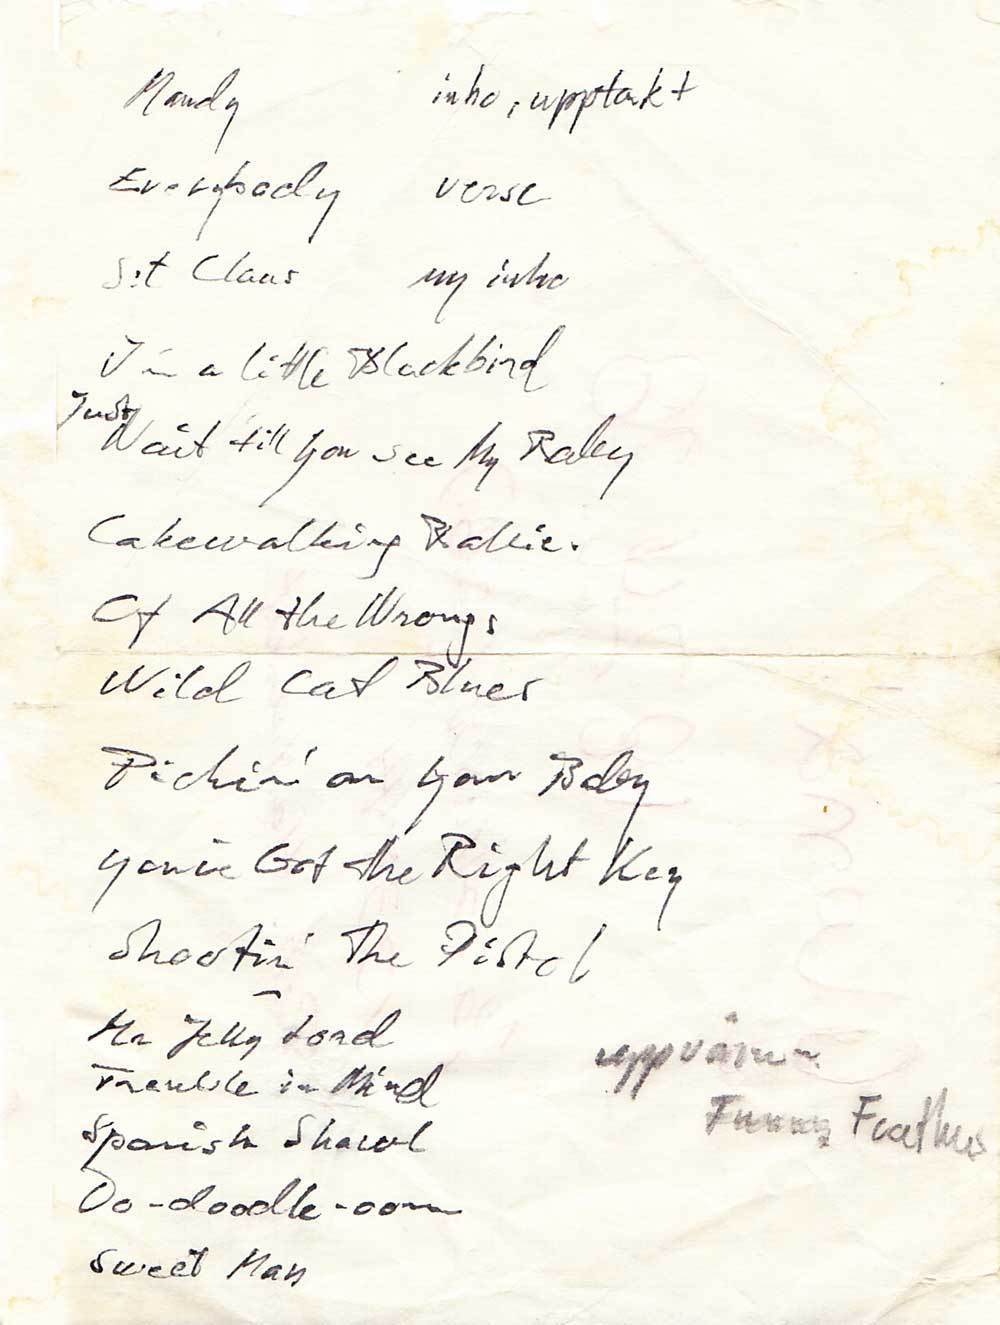 Mandy intro, upptakt
Everybody verse
St Claus ny intro
I'm a little Blackbird
Just
Wait till you see My Baby
Cakewalking Babie.
Of All the Wrongs
Wild Cat Blues
Pickin' on your Baby
You've Got the Right Key
Shootin' The Pistol
Mr Jelly Lord
Trouble in Mind
Spanish Shawl
Do-doodle-oom
Sweet Man
uppvärmn
Funny Feathers